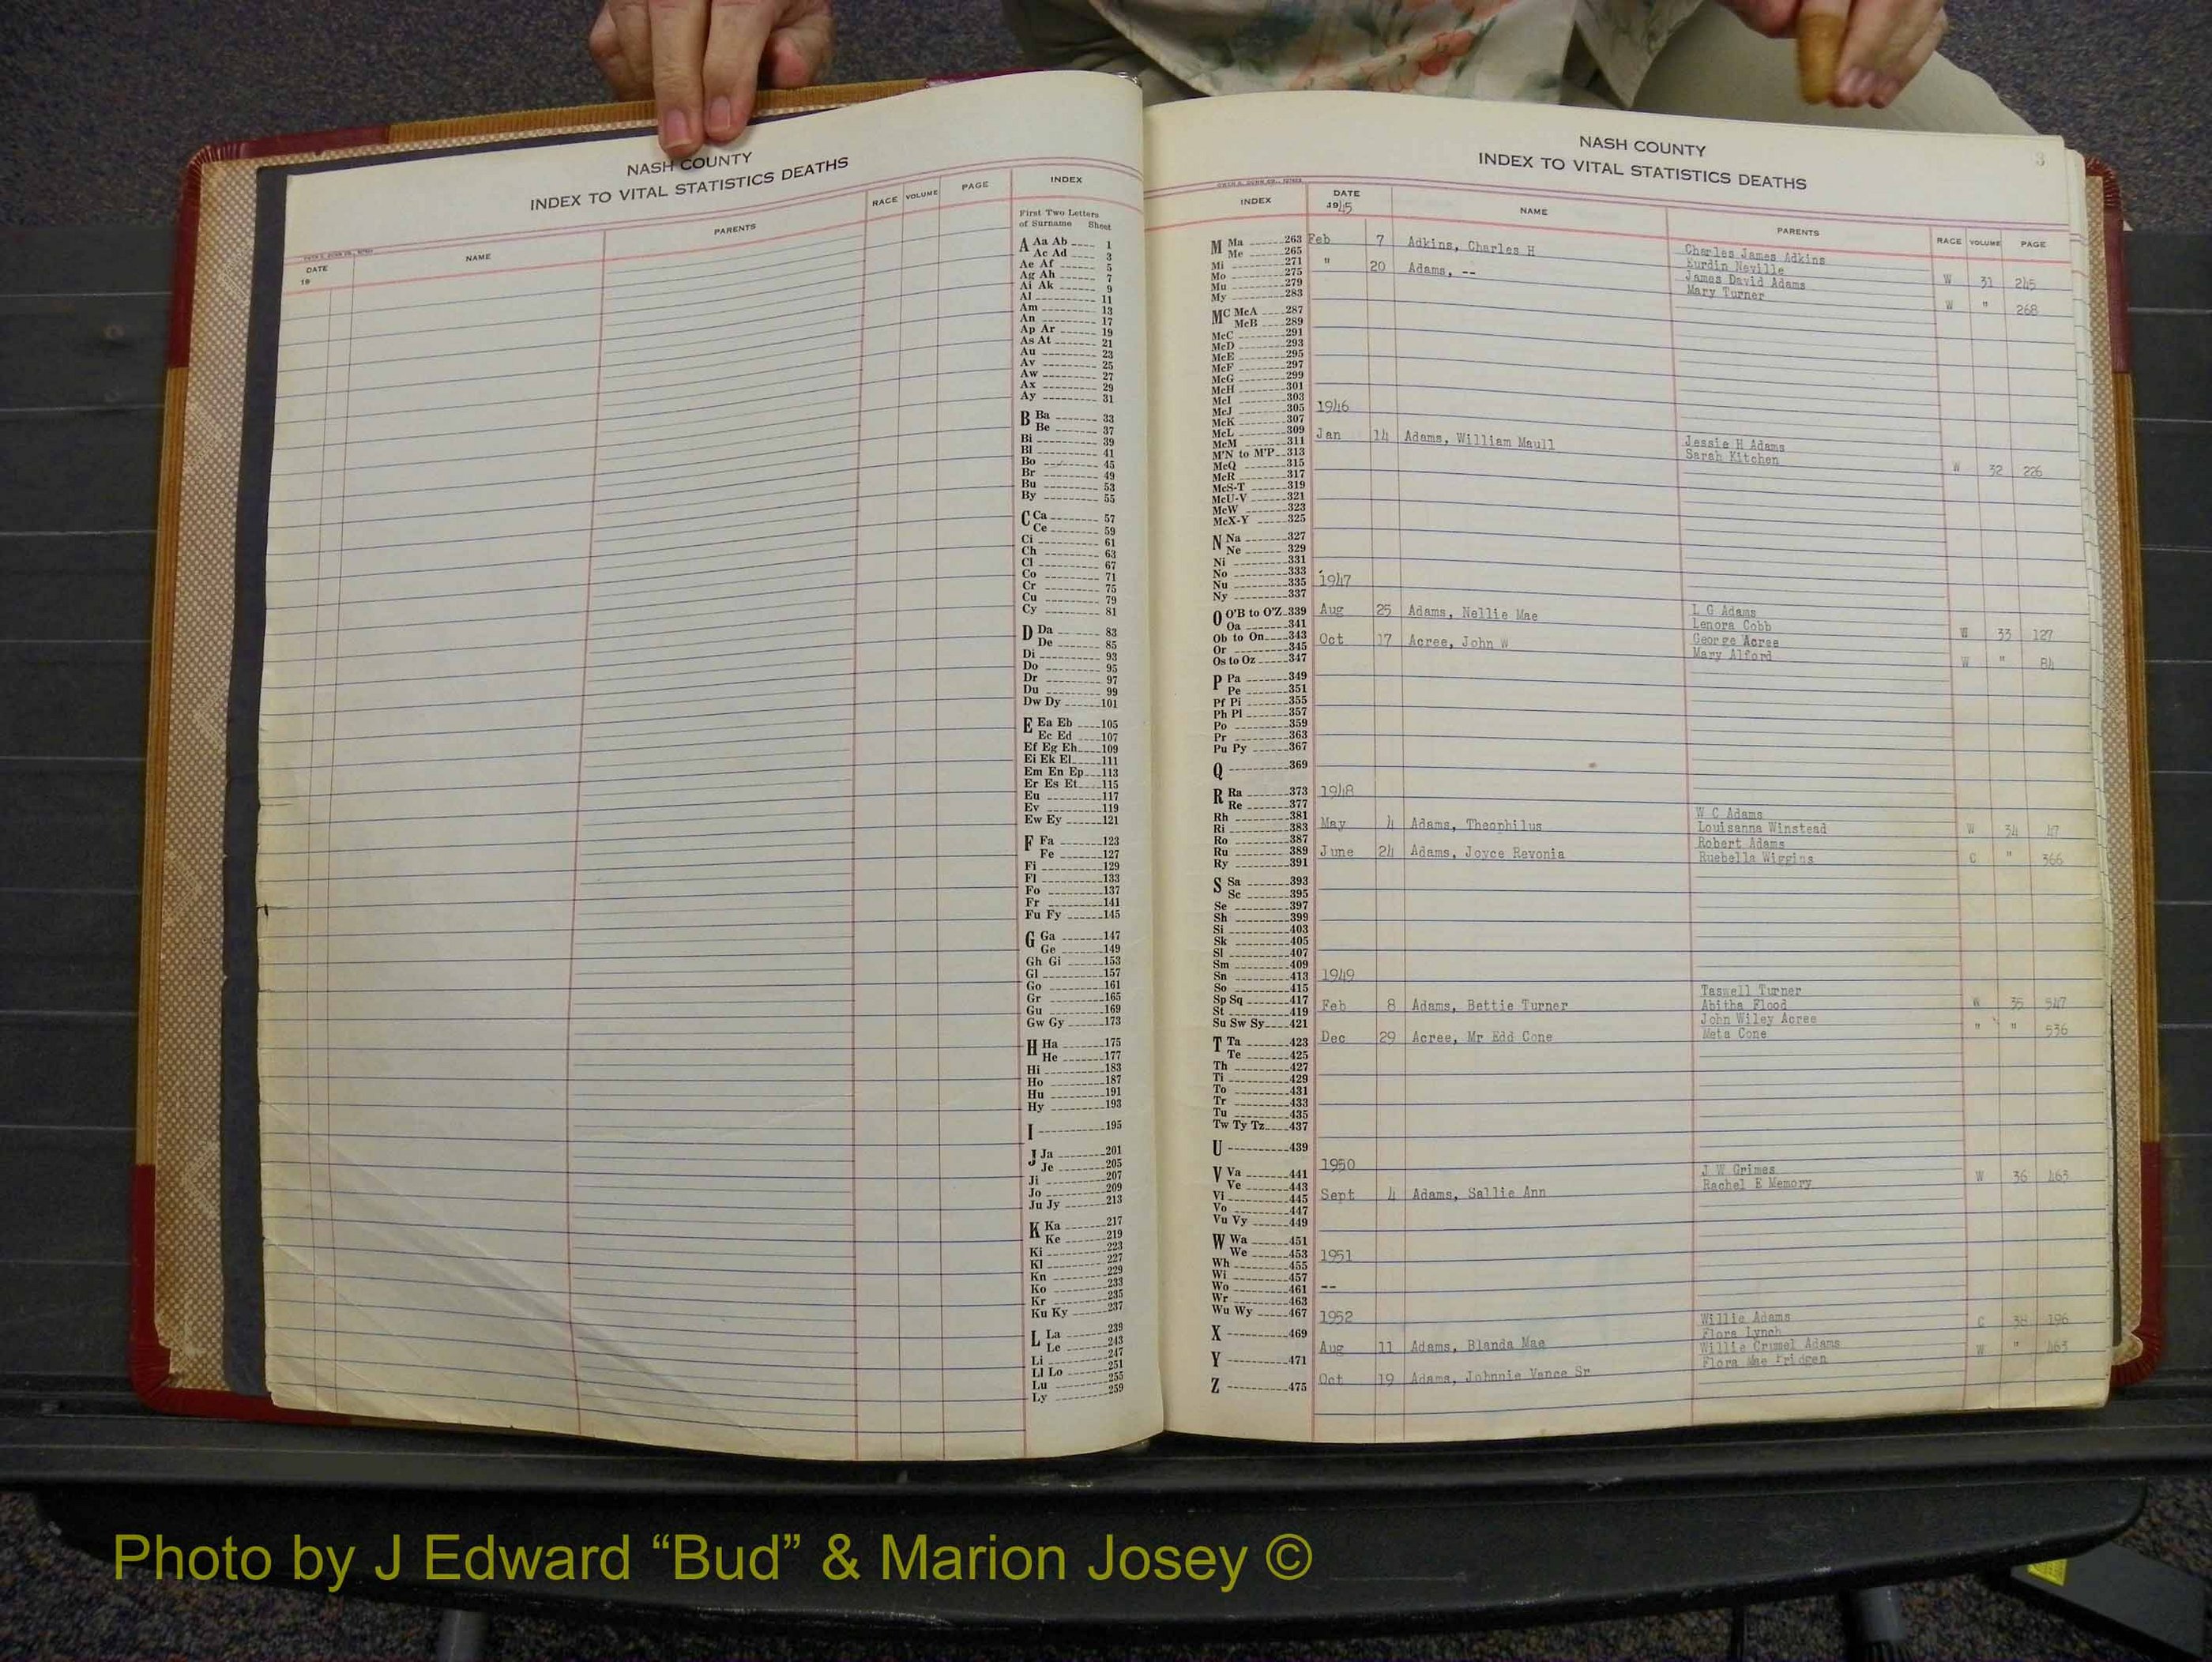 NASH COUNTY
INDEX TO VITAL STATISTICS DEATHS
DATE
19
NAME
PARENTS
RACE
VOLUME
PAGE
INDEX
First Two Letters
of Surname Sheet
A Aa Ab 1
Ac Ad 3
Ae Af 5
Ag Ah 7
Ai Ak 9
Al 11
Am 13
An 17
Ap Ar 19
As At 21
Au 23
Av 25
Aw 27
Ax 29
Ay 31
B Ba 33
Be 37
Bi 39
Bl 41
Bo 45
Br 49
Bu 53
By 55
C Ca 57
Ce 59
Ci 61
Ch 63
Cl 67
Co 71
Cr 75
Cu 79
Cy 81
D Da 83
De 85
Di 93
Do 95
Dr 97
Du 99
Dw Dy 101
E Ea Eb 105
Ec Ed 107
Ef Eg Eh 109
Ei Ek El 111
Em En Ep 113
Er Es Et 115
Eu 117
Ev 119
Ew Ey 121
F Fa 123
Fe 127
Fi 129
Fl 133
Fo 137
Fr 141
Fu Fy 145
G Ga 147
Ge 149
Gh Gi 153
Gl 157
Go 161
Gr 165
Gu 169
Gw Gy 173
H Ha 175
He 177
Hi 183
Ho 187
Hu 191
Hy 193
I 195
J Ja 201
Je 205
Ji 207
Jo 209
Ju Jy 213
K Ka 217
Ke 219
Ki 223
Kl 227
Kn 229
Ko 233
Kr 235
Ku Ky 237
L La 239
Le 243
Li 247
Ll Lo 251
Lu 255
Ly 259
NASH COUNTY
INDEX TO VITAL STATISTICS DEATHS
3
INDEX
DATE
1945
NAME
PARENTS
RACE
VOLUME
PAGE
M Ma 263
Me 265
Mi 271
Mo 275
Mu 279
My 283
Mc McA 287
McB 289
McC 291
McD 293
McE 295
McF 297
McG 299
McH 301
McI 303
McJ 305
McK 307
McL 309
McM 311
M'N to M'P 313
McQ 315
McR 317
McS-T 319
McU-V 321
McW 323
McX-Y 325
N Na 327
Ne 329
Ni 331
No 333
Nu 335
Ny 337
O O'B to O'Z 339
Oa 341
Ob to On 343
Or 345
Os to Oz 347
P Pa 349
Pe 351
Pf Pi 355
Ph Pl 357
Po 359
Pr 363
Pu Py 367
Q 369
R Ra 373
Re 377
Rh 381
Ri 383
Ro 387
Ru 389
Ry 391
S Sa 393
Sc 395
Se 397
Sh 399
Si 403
Sk 405
Sl 407
Sm 409
Sn 413
So 415
Sp Sq 417
St 419
Su Sw Sy 421
T Ta 423
Te 425
Th 427
Ti 429
To 431
Tr 433
Tu 435
Tw Ty Tz 437
U 439
V Va 441
Ve 443
Vi 445
Vo 447
Vu Vy 449
W Wa 451
We 453
Wh 455
Wi 457
Wo 461
Wr 463
Wu Wy 467
X 469
Y 471
Z 475
Feb 7 Adkins, Charles H Charles James Adkins
Eurdin Neville W 31 245
" 20 Adams, -- James David Adams
Mary Turner W " 268
1946
Jan 14 Adams, William Maull Jessie H Adams
Sarah Kitchen W 32 226
1947
Aug 25 Adams, Nellie Mae L G Adams
Lenora Cobb W 33 127
Oct 17 Acree, John W George Acree
Mary Alford W " 84
1948
W C Adams
May 4 Adams, Theophilus Louisanna Winstead W 34 47
Robert Adams
June 24 Adams, Joyce Revonia Ruebella Wiggins C " 366
1949
Taswell Turner
Feb 8 Adams, Bettie Turner Abitha Flood W 35 547
John Wiley Acree
Dec 29 Acree, Mr Edd Cone Meta Cone " " 536
1950
J W Grimes
Sept 4 Adams, Sallie Ann Rachel E Memory W 36 463
1951
--
1952
Willie Adams
Aug 11 Adams, Blanda Mae Flora Lynch C 38 196
Willie Crumel Adams
Oct 19 Adams, Johnnie Vance Sr Flora Mae Pridgen W " 463
Photo by J Edward “Bud” & Marion Josey ©